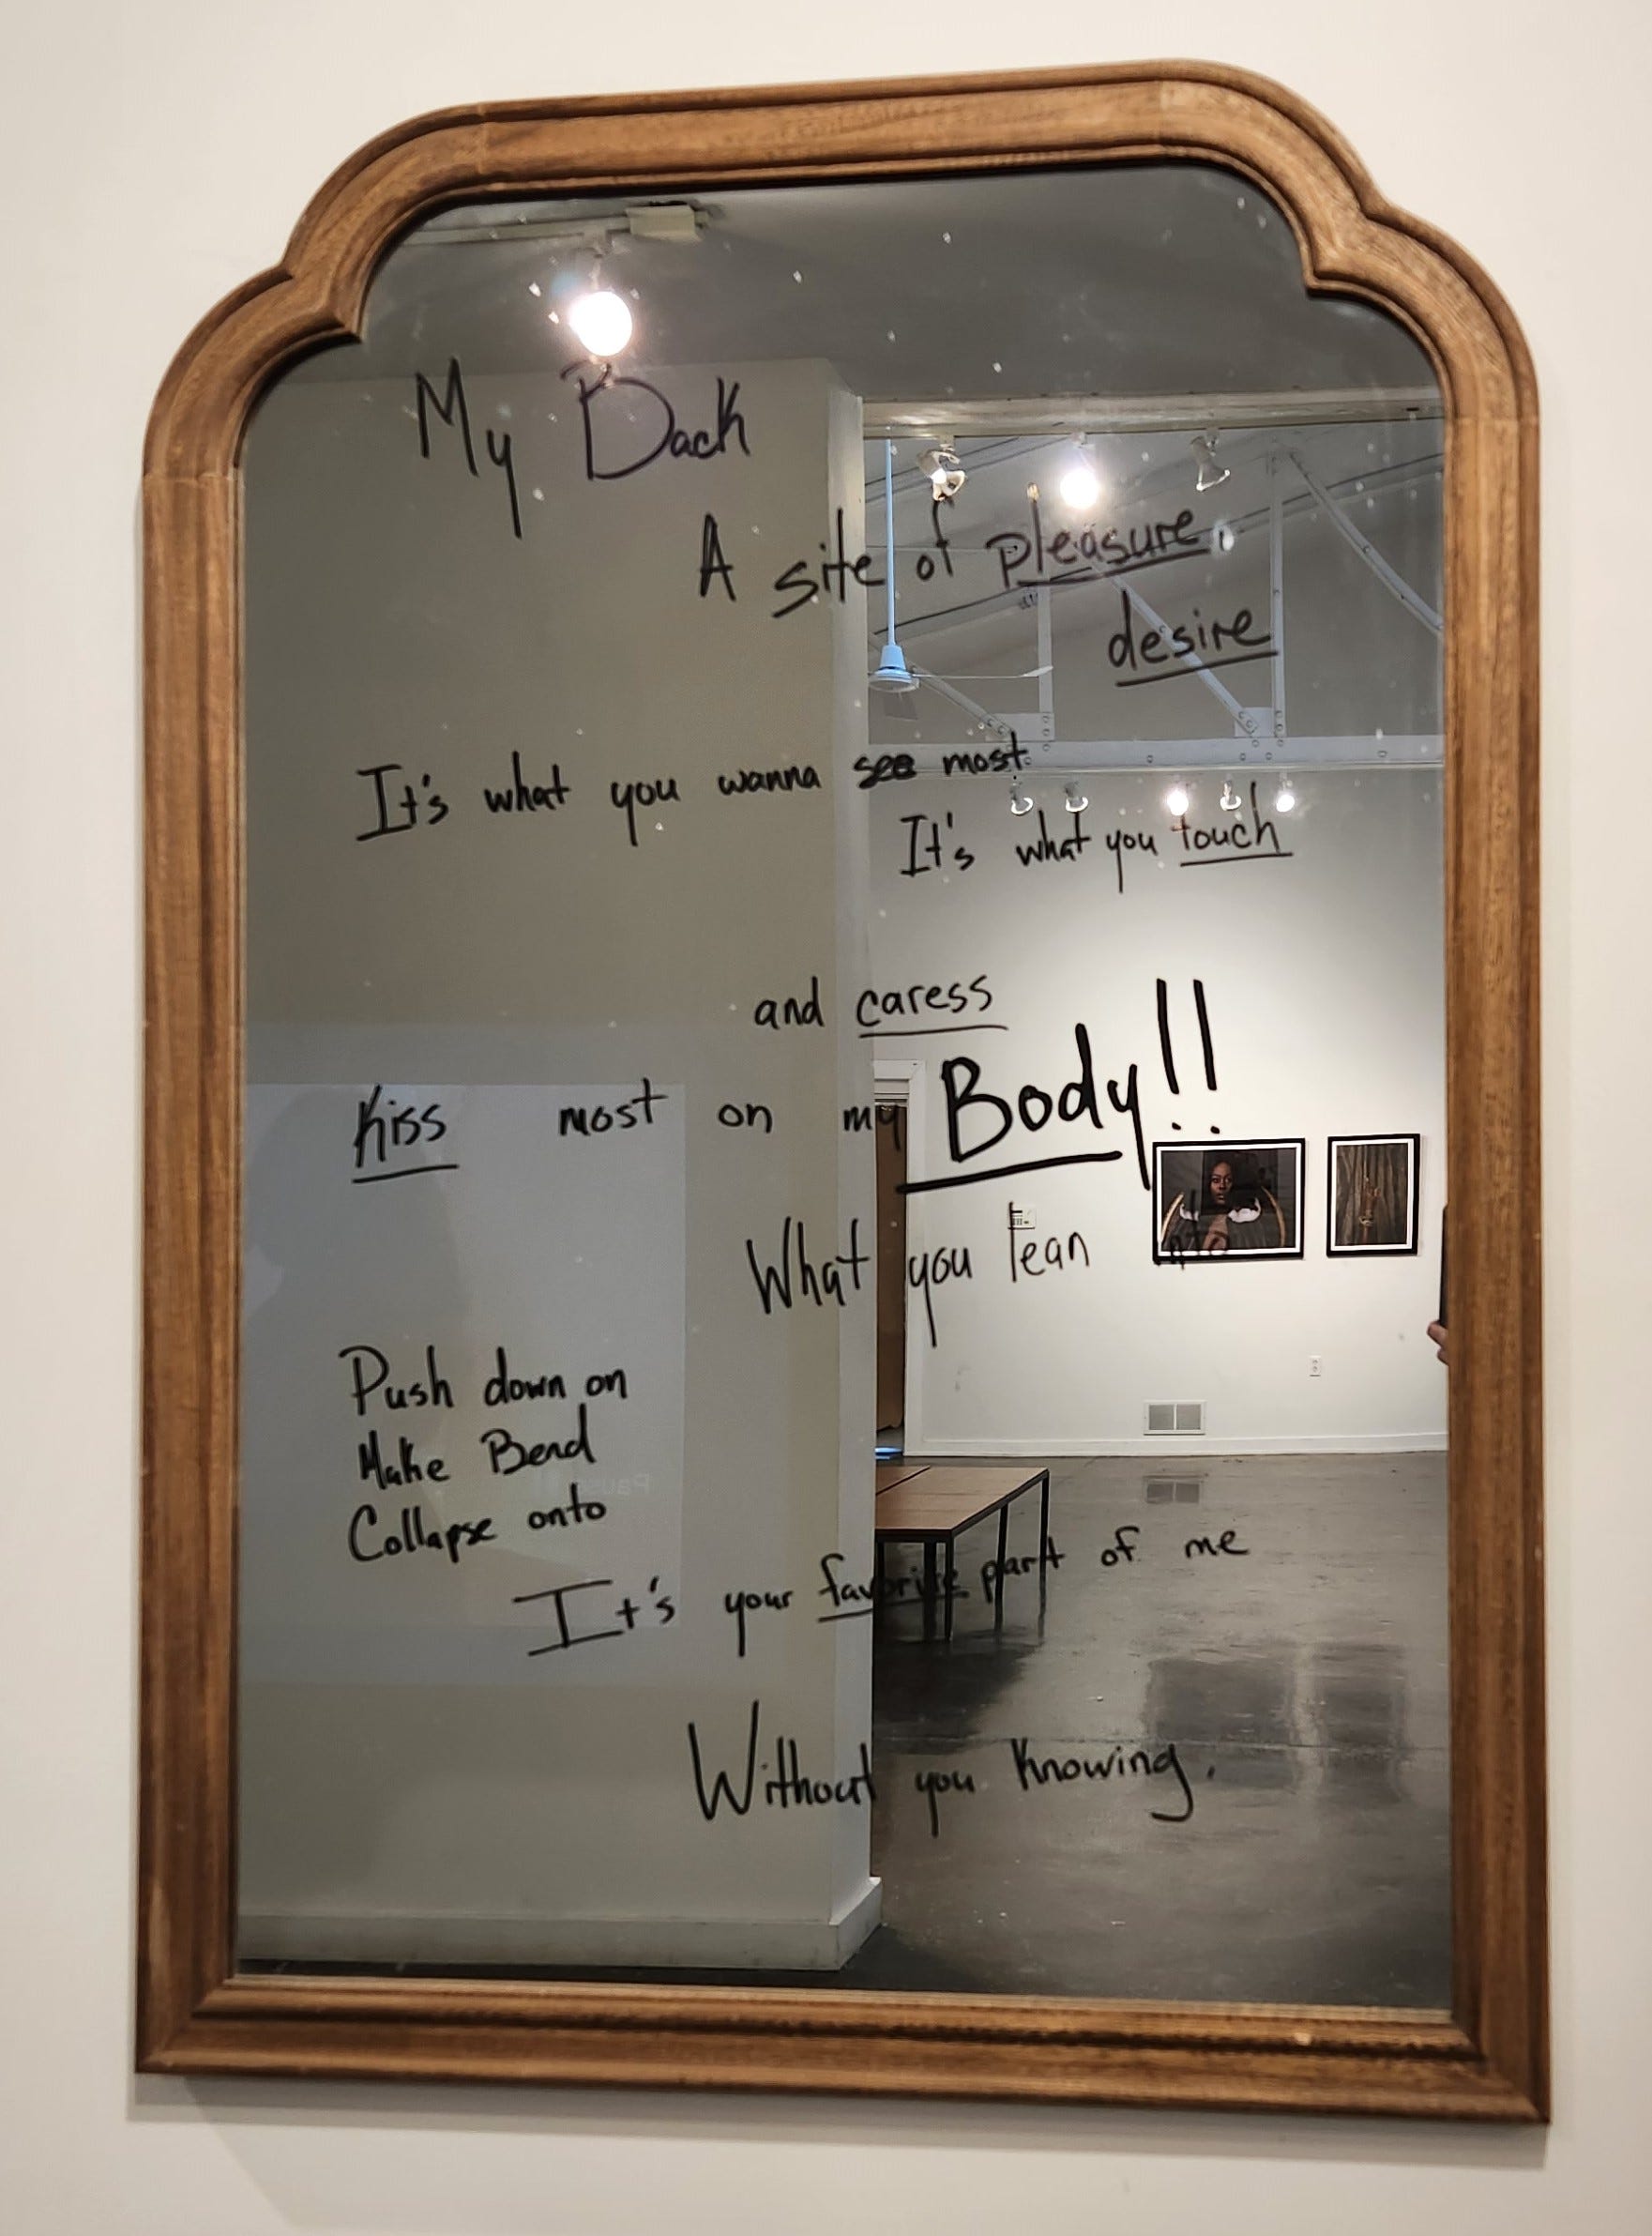 My Back
A site of pleasure,
desire
It's what you wanna see most.
It's what you touch
and caress
Kiss most on my Body!!
What you lean into
Push down on
Make Bend
Collapse onto
It's your favorite part of me
Without you knowing.